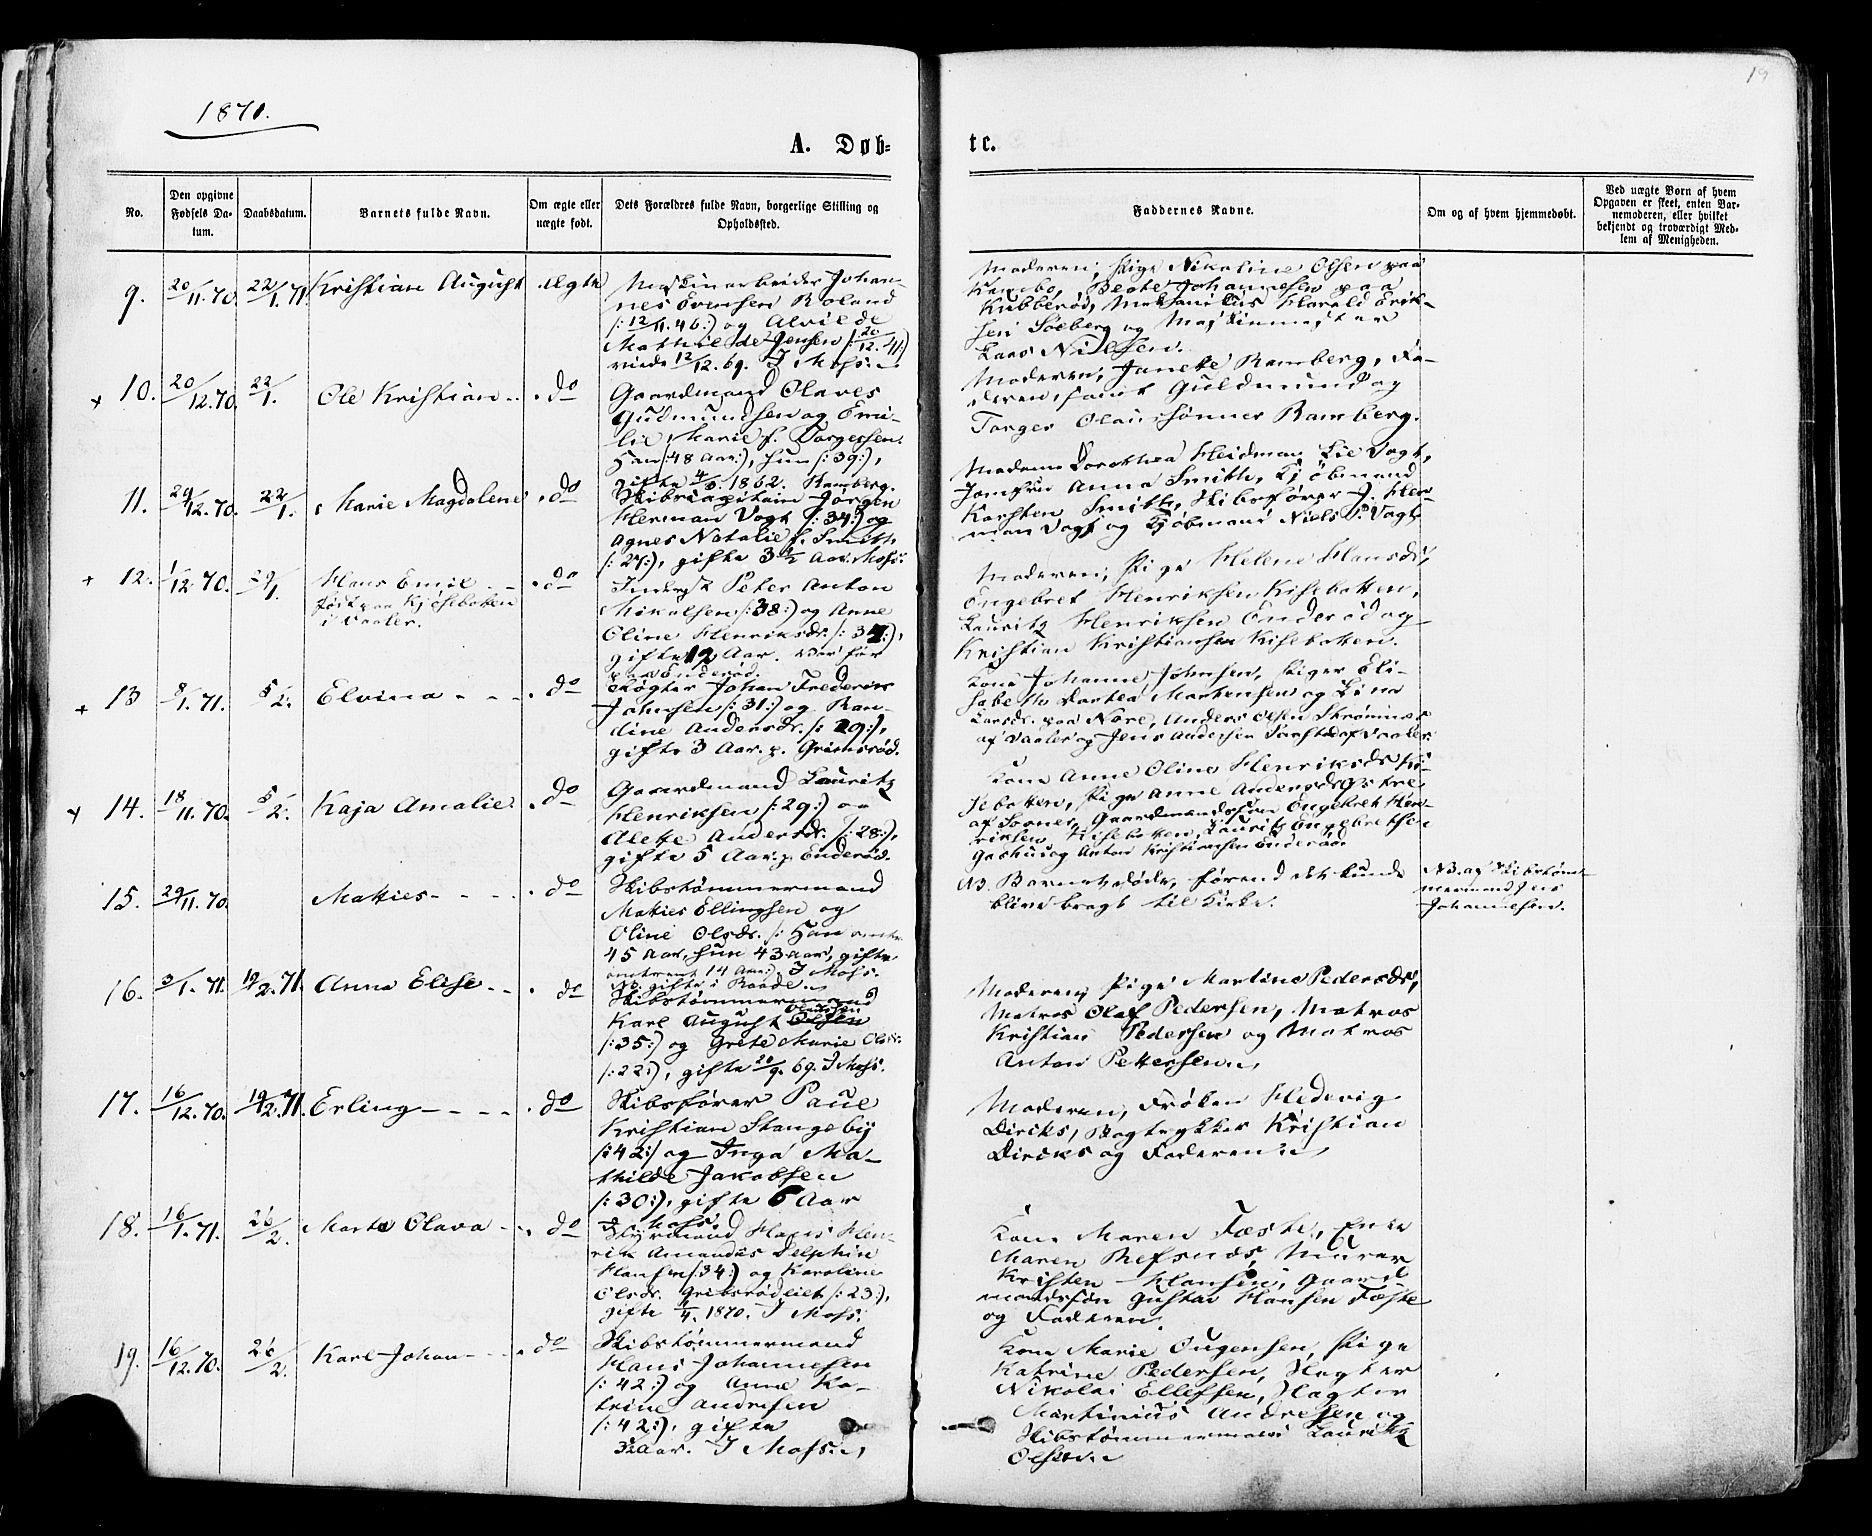 1871.
19
A. Døb=
te.
No.
Den opgivne Fødsels Da-tum.
Daabsdatum.
Barnets fulde Navn.
Om ægte eller uægte født.
Dets Forældres fulde Navn, borgerlige Stilling og Opholdssted.
Faddernes Navne.
Om og af hvem hjemmedøbt.
Ved uægte Børn af hvem Opgaven er skeet, enten Bar-nemoderen, eller hvilket bekjendt og troværdigt Med-lem af Menigheden.
9. 20/11.70. 22/1.71. Kristian August Ægte
Maskinarbeider Johan-
nes Evensen Roland
/: 12/11.46:) og Alvilde
Mathilde Jensen /: 20/12.41:)
viede 12/12.69. I Moss.
Moderen, Pige Nikoline Olsen paa
Kambo, Beate Johannesen paa
Kubberød, Mekanikus Harald Erik-
sen Solberg og Maskinmester
Lars Nielsen.
+ 10. 20/12.70. 22/1. Ole Kristian do
Gaardmand Olaves
Gudmundsen og Emi-
lie Marie f. Torgersen.
Han /:48 Aar:), hun /:39:),
gifte 1862. Ramberg.
Moderen, Janeke Ramberg, Fa-
deren, samt Guldmund og
Torger Olaussønner Ramberg.
11. 20/12.70. 22/1. Marie Magdalene do
Skibscapitain Jørgen
Herman Vogt /:34:) og
Agnes Natalie f. Smith
/:27:), gifte 3 1/2 Aar. Moss.
Moderen Dorothea Heidman Lie Vogt,
Jomfru Anna Smith, Kjøbmand
Karsten Smith, Skibsfører J. Her-
man Vogt og Kjøbmand Niels P. Vogt
+ 12. 1/12.70. 29/1. Hans Emil do
født paa Kjøsebotten
i Vaaler.
Inderst Peter Anton
Mikalsen /:38:) og Anne
Oline Henriksdr. /:37:),
gifte 12 Aar. var før
paa Enderød.
Moderen, Pige Helene Hansdr,
Engebret Henriksen Kisebotten,
Lauritz Henriksen Enderød og
Kristian Kristiansen Kisebotten.
+ 13 8/1.71. 5/2. Elvina do
Røgter Johan Frederik
Johnsen /:31:) og Ran-
dine Andersdr. /:29:),
gifte 3 Aar. p. Grimsrød.
Kone Johanne Johnsen, Piger Eli-
sabeth Dortea Martensen og Line
Larsdr. paa Nore, Anders Olsen Strømnes
af Vaaler og Jens Andersen af Vaaler
+ 14. 18/11.70. 5/2. Kaja Amalie do
Gaardmand Lauritz
Henriksen /:29:) og
Alette Andersdr. /:28:),
gifte 5 Aar. p. Enderød.
Kone Anne Oline Henriksdr Ki-
sebotten, Pige Anne Andersdr Østre
af Soner, Gaardmandssøn Engebret Hen-
riksen Kisebotten, Lauritz Engebretsen
Gashus og Anton Kristiansen Enderød.
15. 29/11.70. Matties do
Skibstømmermand
Mathies Ellingsen og
Oline Olsdr. /: Han omtr.
45 Aar, hun 43 Aar, gifte
omtrent 14 Aar:). I Moss.
NB. gifte i Raade.
NB. Barnet døde, førend det kunde
blive bragt til Kirke.
NB. af Skibstøm-
mermand Jens
Johannesen.
16. 3/1.71. 19/2.71. Anna Elise do
Skibstømmermand
Karl August Olaussen
/:35:) og Grete Marie Olsdr.
/:22:), gifte 20/9.69. I Moss.
Moderen, Pige Martine Pedersdr,
Matros Olaf Pedersen, Matros
Kristian Pedersen og Matros
Anton Pettersen.
17. 16/12.70. 19/2.71. Erling do
Skibsfører Paul
Kristian Stangeby
/:42:) og Inga Ma-
thilde Jakobsen
/:30:), gifte 6 Aar
I Moss.
Moderen, Frøken Hedevig
Diriks, Bogtrykker Kristian
Diriks og Faderen.
18. 16/1.71. 26/2. Marte Olava do
Styrmand Hans Hen-
rik Amandus Delphin
Hansen /:34:) og Karoline
Olsdr. Gribsrødeilet /:23:),
gifte 4/4.1870. I Moss.
Kone Maren Fæste, Enke
Maren Refsnæs, Murer
Kristen Hansen, Gaard-
mandssøn Gustav Hansen Fæste
og Faderen.
19. 16/12.70. 26/2. Karl Johan do
Skibstømmermand
Hans Johannesen
/:42:) og Anne Ka-
trine Andresen
/:42:), gifte
Aar. I Moss.
Kone Marie Eugensen, Pige
Katrine Pedersen, Slagter
Nikolai Ellefsen, Slagter
Martinius Andresen og
Skibstømmermand Lauritz
Olsen.